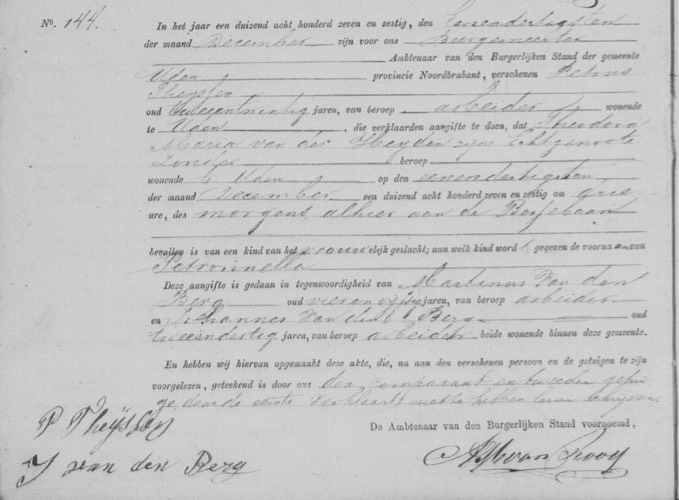 No. 144. In het jaar een duizend acht honderd zeven en zestig, den eenendertigsten
der maand December zijn voor ons Burgemeester
Ambtenaar van den Burgerlijken Stand der gemeente
Uden provincie Noordbrabant, verschenen Petrus
Theyssen
oud jaren, van beroep arbeider wonende
te Uden, die verklaarden aangifte te doen, dat Theodora
Maria van der Heyden zijne Echtgenoote
Zonder beroep
wonende te Uden op den eenendertigsten
der maand December een duizend acht honderd zeven en zestig om drie
ure, des morgens alhier aan de
bevallen is van een kind van het vrouwelijk geslacht; aan welk kind word t gegeven de voornaam van
Petronnella
Deze aangifte is gedaan in tegenwoordigheid van Martinus Van den
Berg oud vier en vijftig jaren, van beroep arbeider
en Johannes Van den Berg oud
tweeendertig jaren, van beroep arbeider beide wonende binnen deze gemeente.
En hebben wij hiervan opgemaakt deze akte, die, na aan den verschenen persoon en de getuigen te zijn
voorgelezen, geteekend is door ons den comparant en tweeden getui
ge, daar de eerste verklaart niet te hebben leeren schrijven.
De Ambtenaar van den Burgerlijken Stand voornoemd,
P Theijssen
J van den Berg
van Rooy